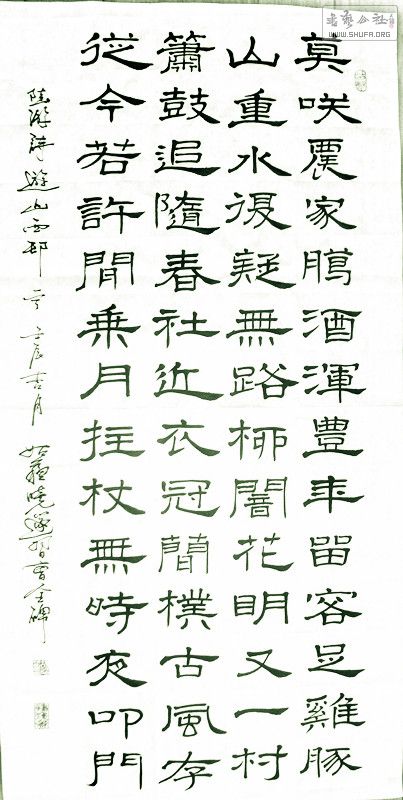 莫咲農家臈酒渾豐年留客足雞豚
山重水復疑無路柳闇花明又一村
簫鼓追隨春社近衣冠簡樸古風存
從今若許閒乘月拄杖無時夜叩門
陸游詩遊山西邨 壬辰吉月 習曹全碑
WWW.SHUFA.ORG